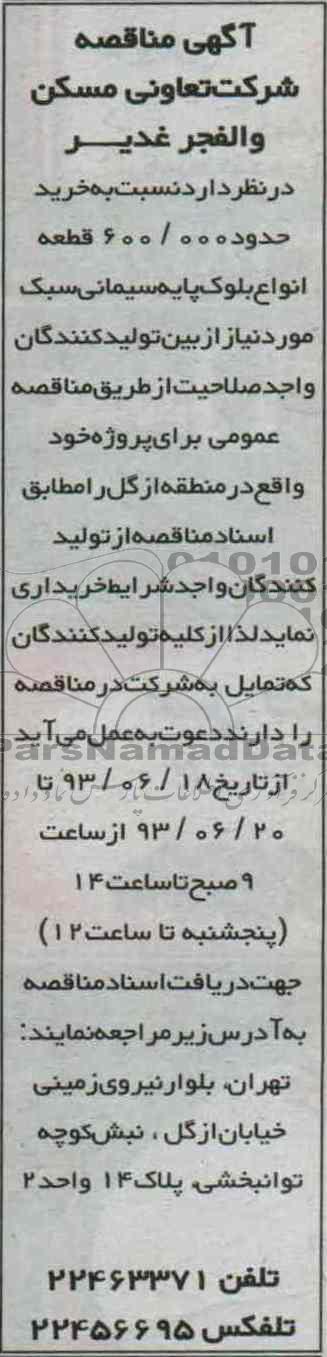 آگهی مناقصه
شرکت تعاونی مسکن
والفجر غدیر
در نظر دارد نسبت به خرید
حدود ۶۰۰/۰۰۰ قطعه
انواع بلوک پایه سیمانی سبک
مورد نیاز از بین تولید کنندگان
واجد صلاحیت از طریق مناقصه
عمومی برای پروژه خود
واقع در منطقه ازگل را مطابق
اسناد مناقصه از تولید
کنندگان واجد شرایط خریداری
نماید لذا از کلیه تولید کنندگان
که تمایل به شرکت در مناقصه
را دارند دعوت به عمل می آید
ParsNamadData
از تاریخ ۹۳/۰۶/۱۸ تا
۹۳/۰۶/۲۰ از ساعت
۹ صبح تا ساعت ۱۴
(پنجشنبه تا ساعت ۱۲)
جهت دریافت اسناد مناقصه
به آدرس زیر مراجعه نمایند:
تهران، بلوار نیروی زمینی
خیابان ازگل، نبش کوچه
توانبخشی، پلاک ۱۴ واحد ۲
تلفن ۲۲۴۶۳۳۷۱
تلفکس ۲۲۴۵۶۶۹۵